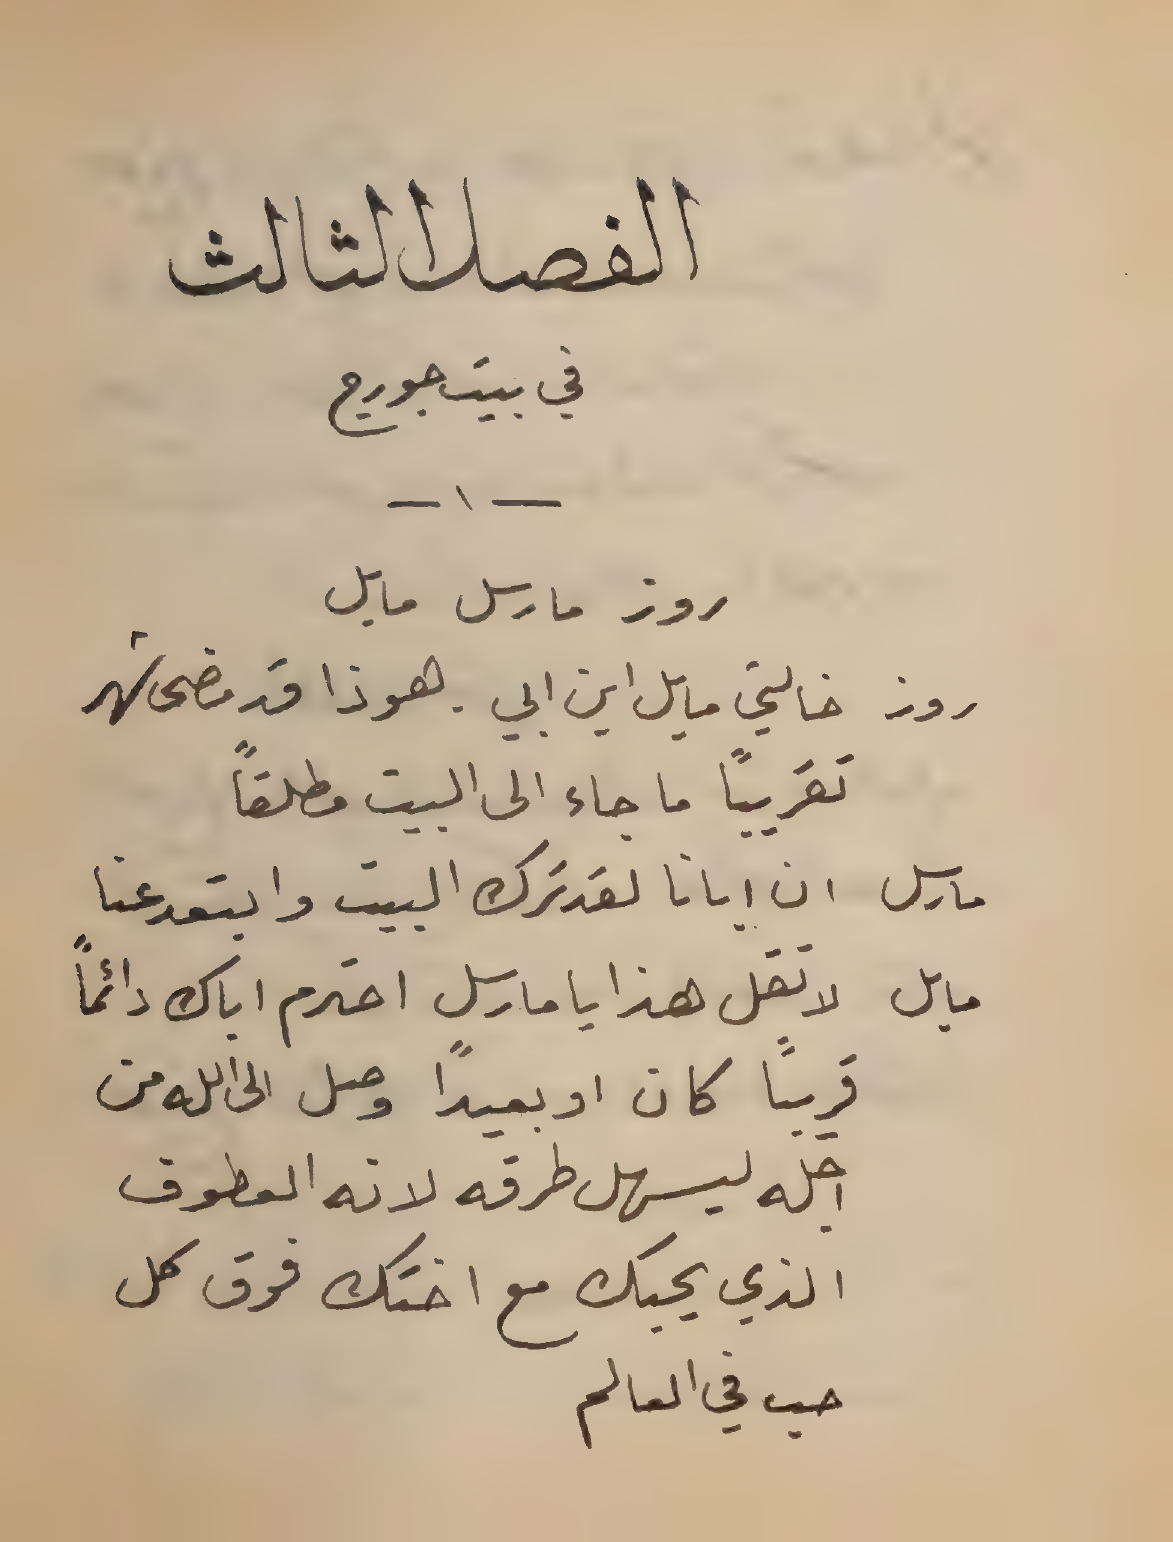 الفصل الثالث
في بيت جورج
— ١ —
روز مارسل مابل
روز خالتي مابل اين ابي . هوذا قد مضى شهر
تقريبًا ما جاء الى البيت مطلقاً
مارسل ان ابانا لقد ترك البيت وابتعد عنا
مابل لا تقل هذا يا مارسل احترم اباك دائماً
قريبًا كان او بعيدًا وصل الى الله من
اجله ليسهل طرقه لانه العطوف
الذي يحبك مع اختك فوق كل
حب في العالم